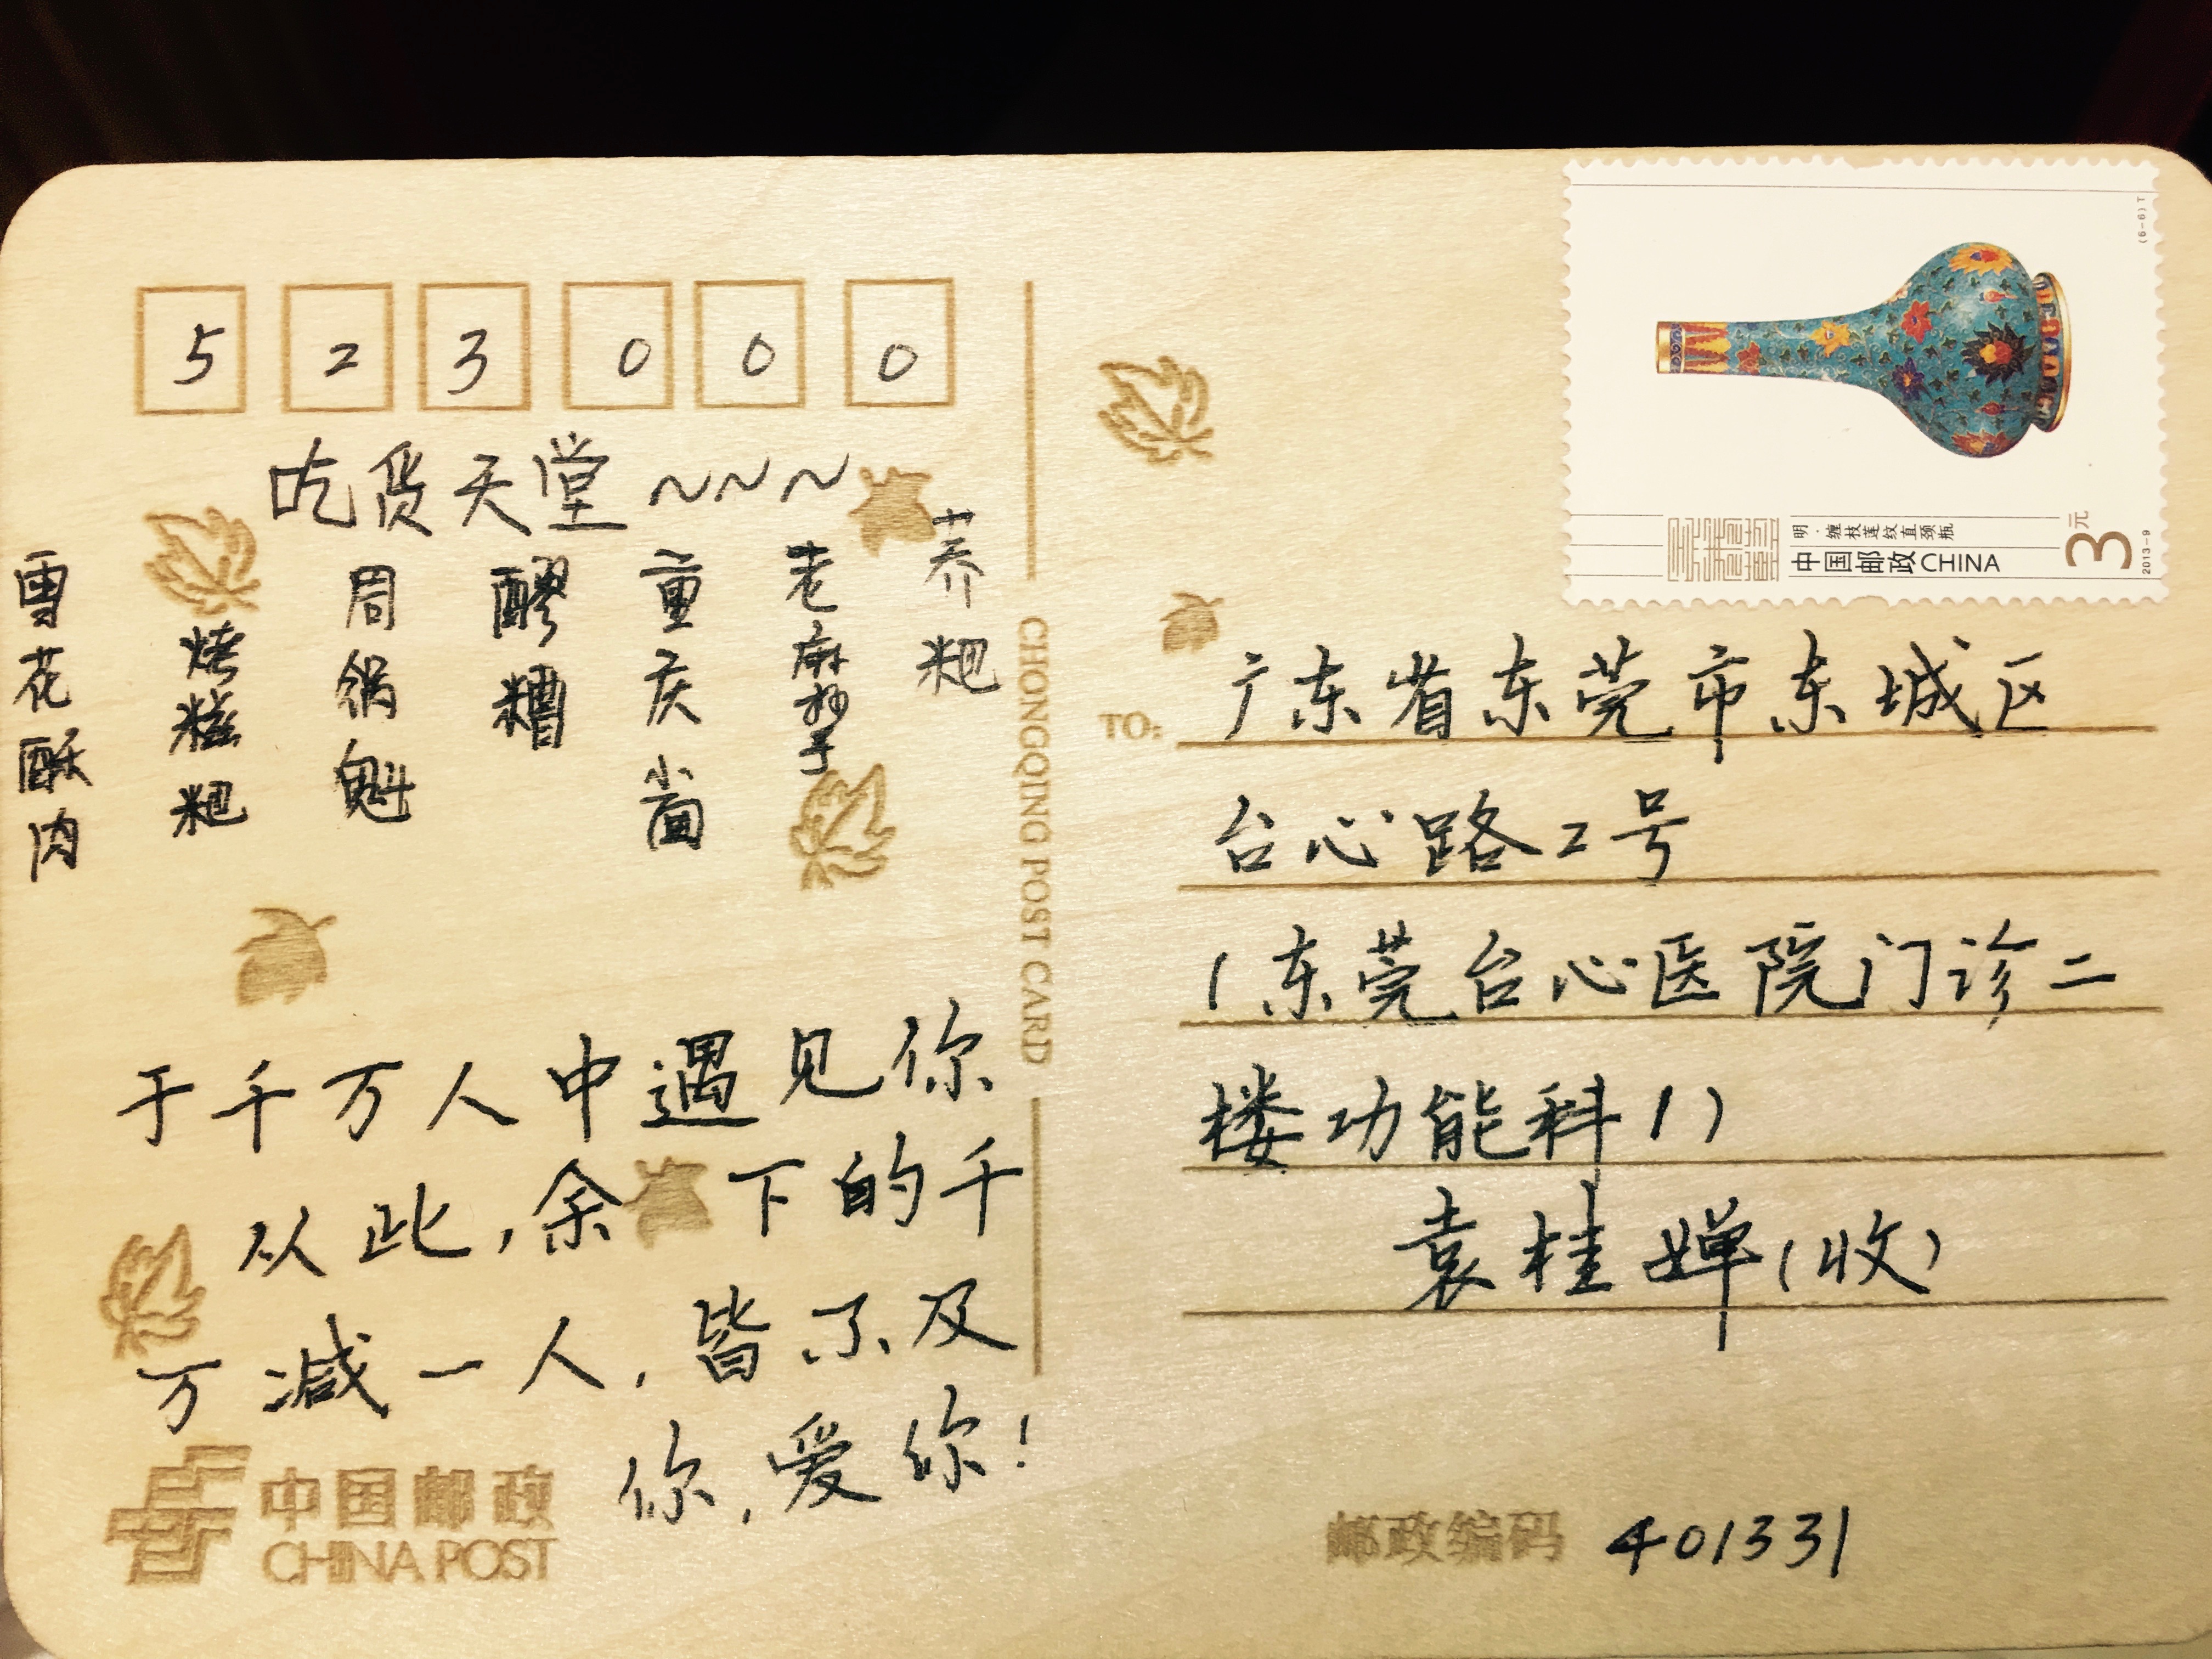 523000
吃货天堂~~~
雪花酥肉
烤糍粑
周锅魁
醪糟
重庆小面
老麻抄手
荞粑
于千万人中遇见你
从此,余下的千
万减一人,皆不及
你,爱你!
中国邮政
CHINA POST
CHONGQING POST CARD
(6-6)T
明·缠枝莲纹直颈瓶
中国邮政CHINA
3元
2013-9
TO: 广东省东莞市东城区
台心路2号
(东莞台心医院门诊二
楼功能科1)
袁桂婵(收)
邮政编码 401331